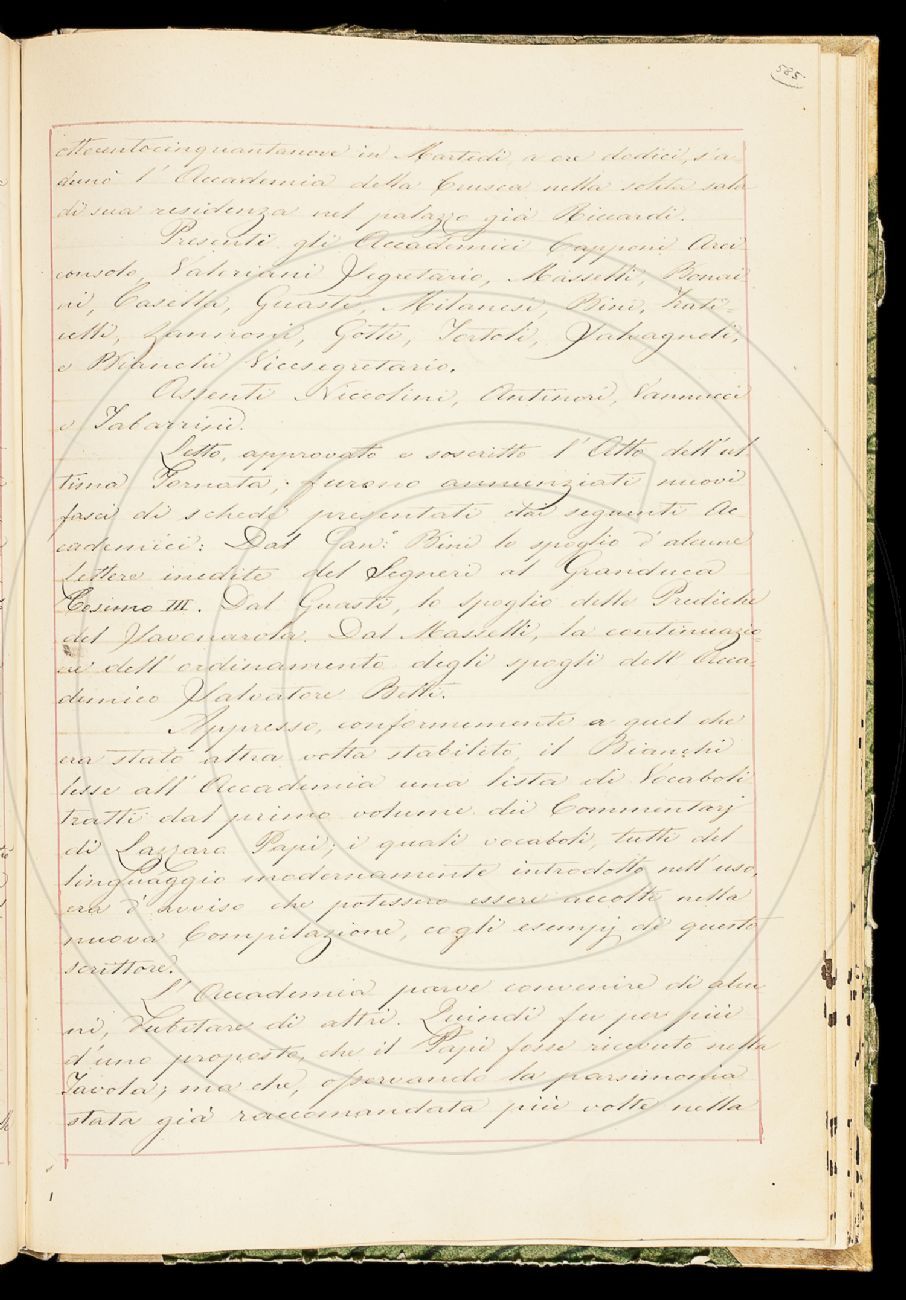 585
ottocentocinquantanove in Martedì, a ore dodici, s'a-
dunò l'Accademia della Crusca nella solita sala
di sua residenza nel palazzo già Riccardi.
Presenti gli Accademici Capponi Arci
consolo, Valeriani Segretario, Masselli, Bonai-
ni, Casella, Guasti, Milanesi, Bini, Frati-
celli, Zannoni, Gotti, Tortoli, Salvagnoli,
e Bianchi Vicesegretario.
Assenti Niccolini, Antinori, Vannucci
e Tabarrini.
Letto, approvato e soscritto l'Atto dell'ul
tima Tornata; furono annunziati nuovi
fasci di schede presentati dai seguenti Ac-
cademici: Dal Can.º Bini lo spoglio d'alcune
Lettere inedite del Segneri al Granduca
Cosimo III. Dal Guasti, lo spoglio delle Prediche
del Savonarola. Dal Masselli, la continuazio-
ne dell'ordinamento degli spogli dell'Acca-
demico Salvatore Betti.
Appresso, conformemente a quel che
era stato altra volta stabilito, il Bianchi
lesse all'Accademia una lista di Vocaboli
tratti dal primo volume dei Commentarj
di Lazzaro Papi; i quali vocaboli, tutti del
linguaggio modernamente introdotto nell'uso,
era d'avviso che potessero essere accolti nella
nuova Compilazione, cogli esempj di questo
scrittore.
L'Accademia parve convenire di alcu
ni, dubitare di altri. Quindi fu per più
d'uno proposto, che il Papi fosse ricevuto nella
Tavola; ma che, osservando la parsimonia
stata già raccomandata più volte nella